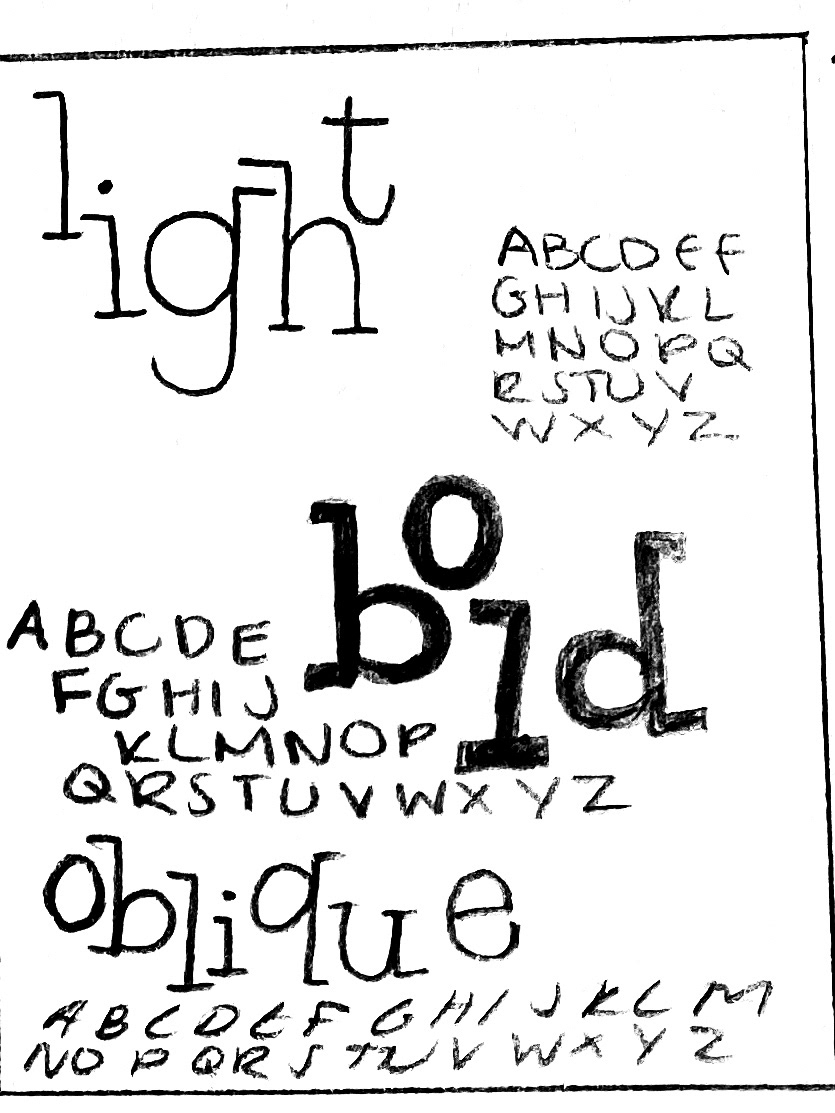 light
ABCDEF
GHIJKL
MNOPQ
RSTUV
WXYZ
bold
ABCDE
FGHIJ
KLMNOP
QRSTUVWXYZ
oblique
ABCDEFGHIJKLM
NOPQRSTUVWXYZ